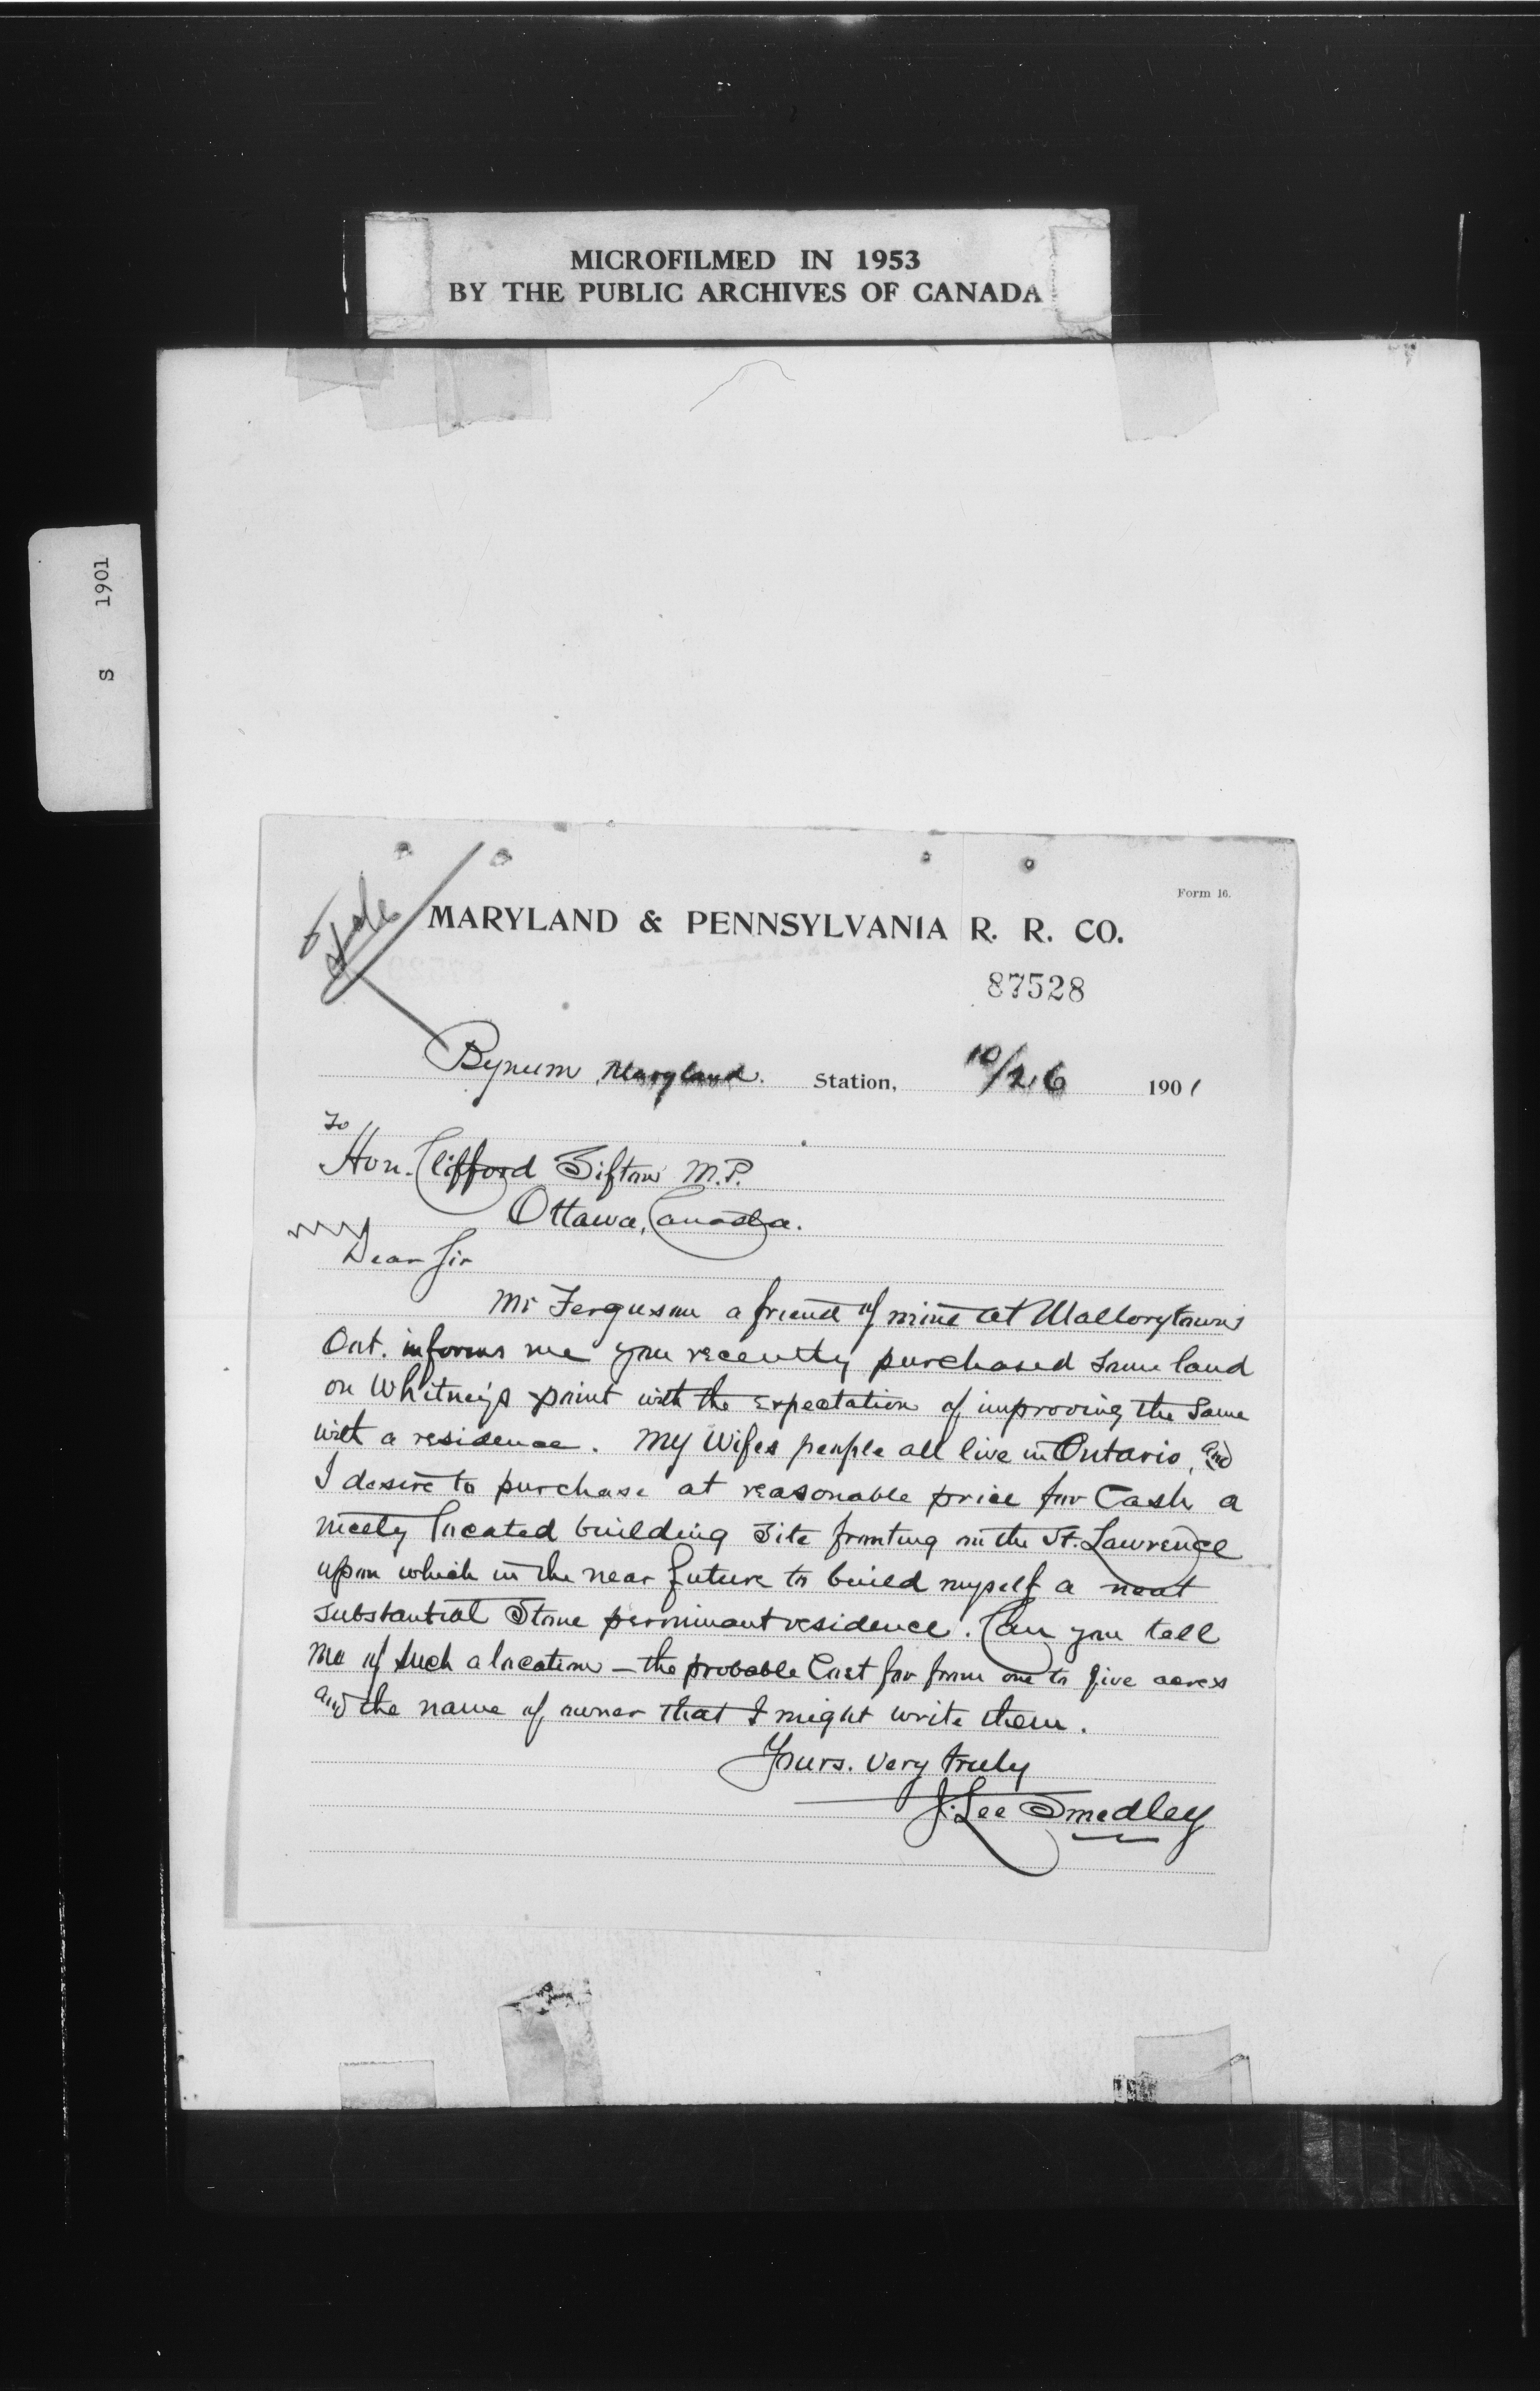 MICROFILMED IN 1953
BY THE PUBLIC ARCHIVES OF CANADA
S 1901
Form 16.
MARYLAND & PENNSYLVANIA R. R. CO.
87528
Bynum Maryland. Station, 10/26 1901
To
Hon. Clifford Sifton M.P.
Ottawa, Canada.
My
Dear Sir
Mr Ferguson a friend of mine at Mallorytown
Ont. informs me you recently purchased some land
on Whitney's point with the expectation of improving the same
with a residence. My Wifes people all live in Ontario, and
I desire to purchase at reasonable price for Cash a
nicely located building site fronting on the St. Lawrence
upon which in the near future to build myself a neat
substantial Stone perminant residence. Can you tell
me of such a location — the probable Cost for from one to five acres
and the name of owner that I might write them.
Yours. very truly
J. Lee Smedley